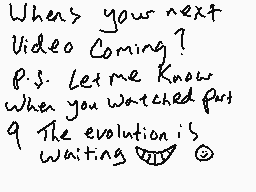 When's your next
Video Coming?
P.S. Let me Know
when you watched part
9 The evolution is
waiting